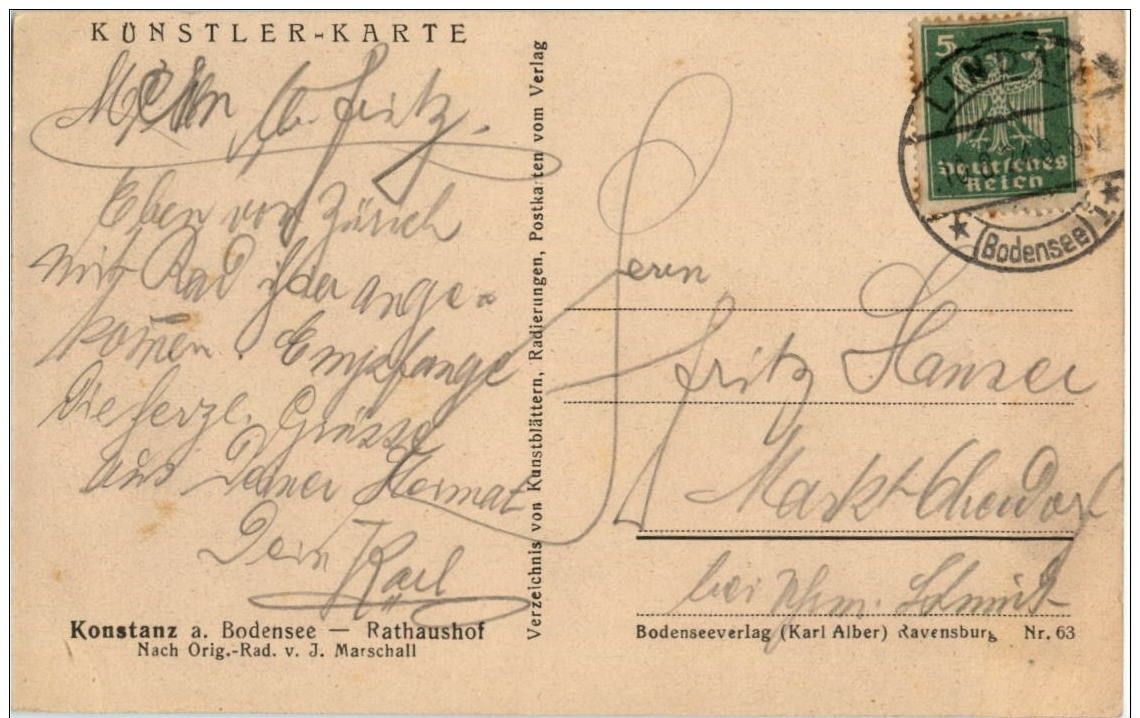 KÜNSTLER-KARTE
Mein lb. Fritz.
Eben von Zürich
mit Rad hier ange-
kom̄en. Empfange
die herzl. Grüsse
aus Deiner Heimat
Dein Karl
Konstanz a. Bodensee — Rathaushof
Nach Orig.-Rad. v. J. Marschall
Verzeichnis von Kunstblättern, Radierungen, Postkarten vom Verlag
5 5
Deutsches
Reich
LINDAU
(Bodensee)
Herrn
Fritz Hanser
Markt
bei Schmid
Bodenseeverlag (Karl Alber) Ravensburg Nr. 63